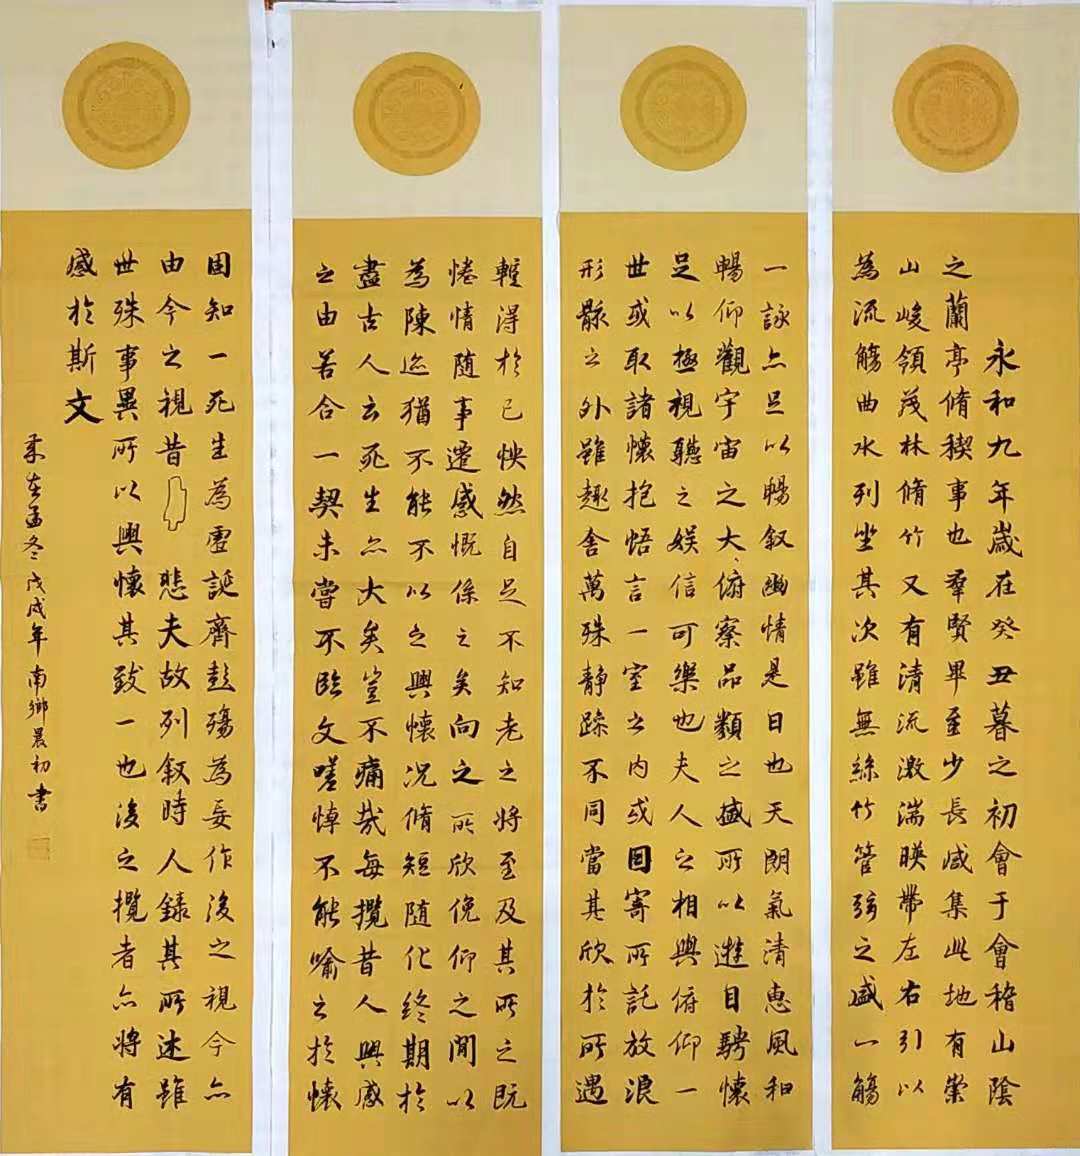 永和九年歲在癸丑暮之初會于會稽山陰
之蘭亭脩稧事也羣賢畢至少長咸集此地有崇
山峻領茂林脩竹又有清流激湍暎帶左右引以
為流觴曲水列坐其次雖無絲竹管弦之盛一觴
一詠亦足以暢叙幽情是日也天朗氣清惠風和
暢仰觀宇宙之大俯察品類之盛所以遊目騁懷
足以極視聽之娱信可樂也夫人之相與俯仰一
世或取諸懷抱悟言一室之内或因寄所託放浪
形骸之外雖趣舍萬殊静躁不同當其欣於所遇
蹔得於己怏然自足不知老之將至及其所之既
惓情随事遷感慨係之矣向之所欣俛仰之間以
為陳迹猶不能不以之興懷況脩短随化終期於
盡古人云死生亦大矣豈不痛哉每攬昔人興感
之由若合一契未嘗不臨文嗟悼不能喻之於懷
固知一死生為虛誕齊彭殤為妄作後之視今亦
由今之視昔悲夫故列叙時人錄其所述雖
世殊事異所以興懷其致一也後之攬者亦將有
感於斯文
在孟冬戊戌年南鄉晨初書